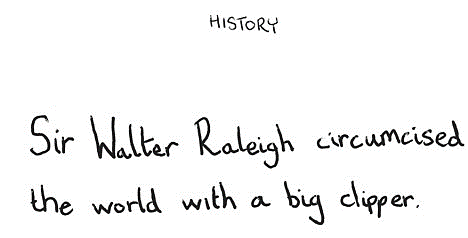 HISTORY
Sir Walter Raleigh circumcised
the world with a big clipper.